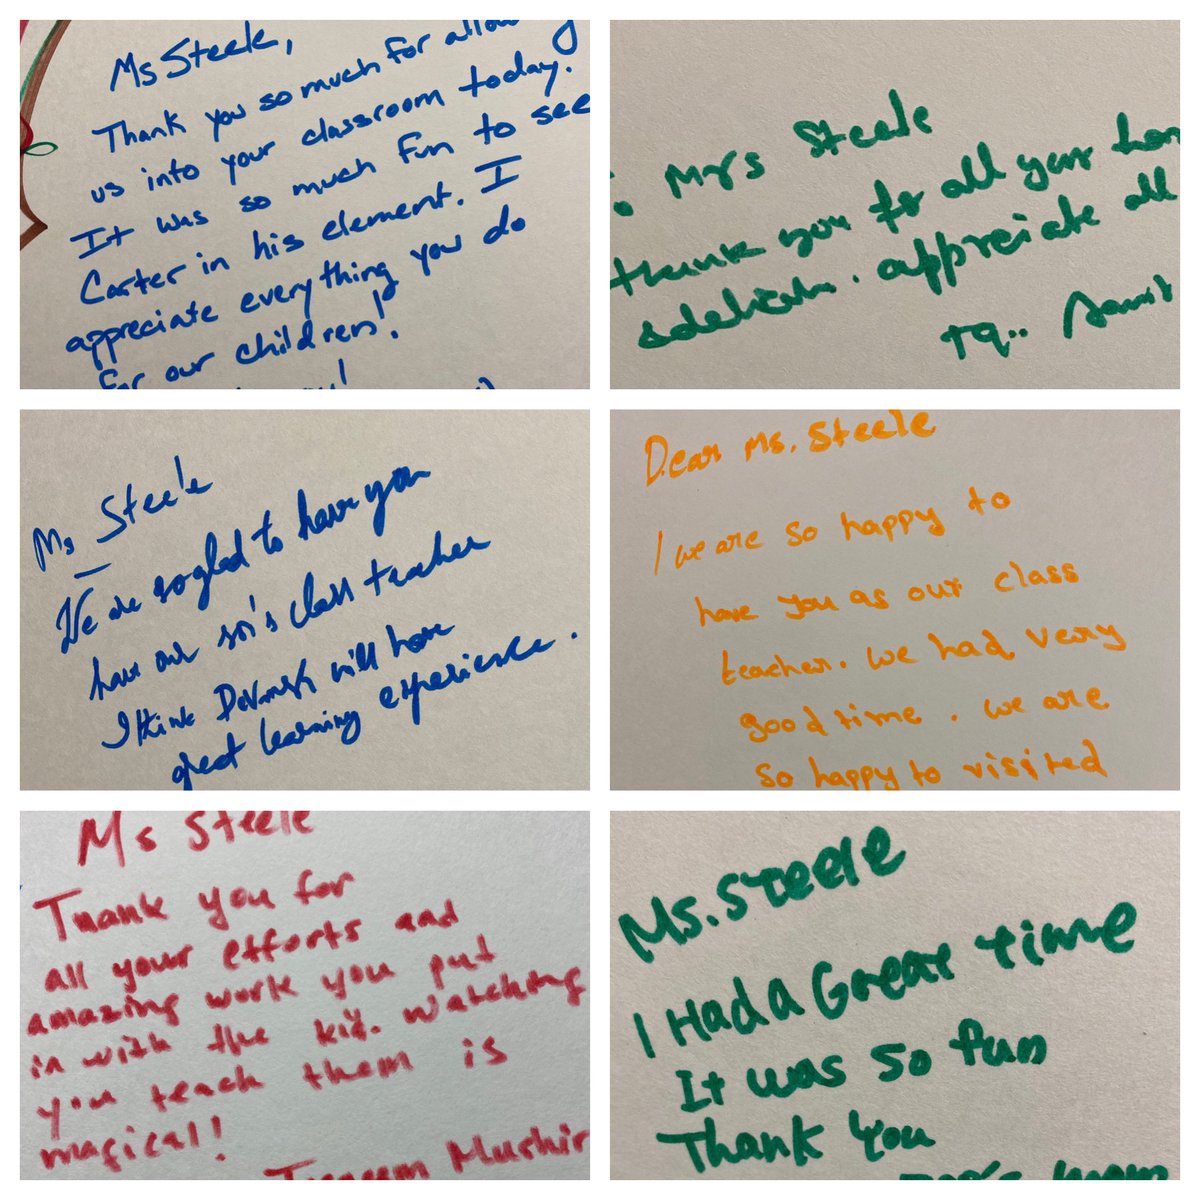 Ms Steele,
Thank you so much for allowing
us into your classroom today.
It was so much fun to see
Carter in his element. I
appreciate everything you do
for our children!
Mrs Steele
thank you for all your
appreciate all
TQ..
Ms Steele
We are so glad to have you
have our son's class teacher
I think will have
great learning experience.
Dear Ms. Steele
I we are so happy to
have you as our class
teacher. we had very
good time. we are
so happy to visited
Ms Steele
Thank you for
all your efforts and
amazing work you put
in with the kids. Watching
you teach them is
magical!
Mushir
Ms. Steele
I Had a Great time
It was so fun
Thank You
mom